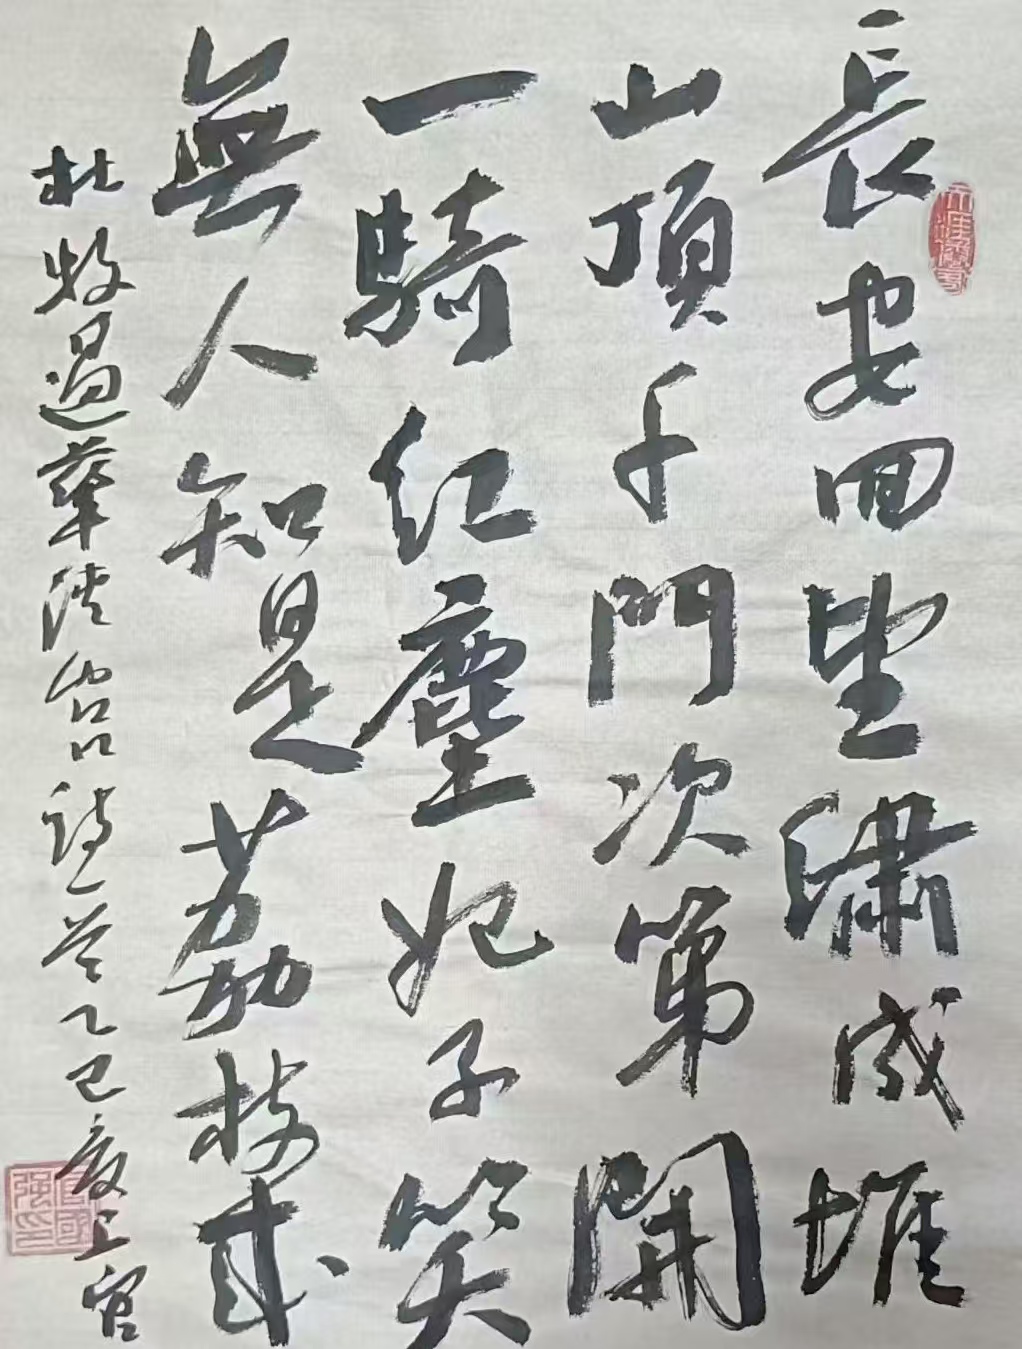 長安回望繡成堆
山頂千門次第開
一騎紅塵妃子笑
無人知是荔枝來
杜牧過華清宮詩一首乙巳夏上官